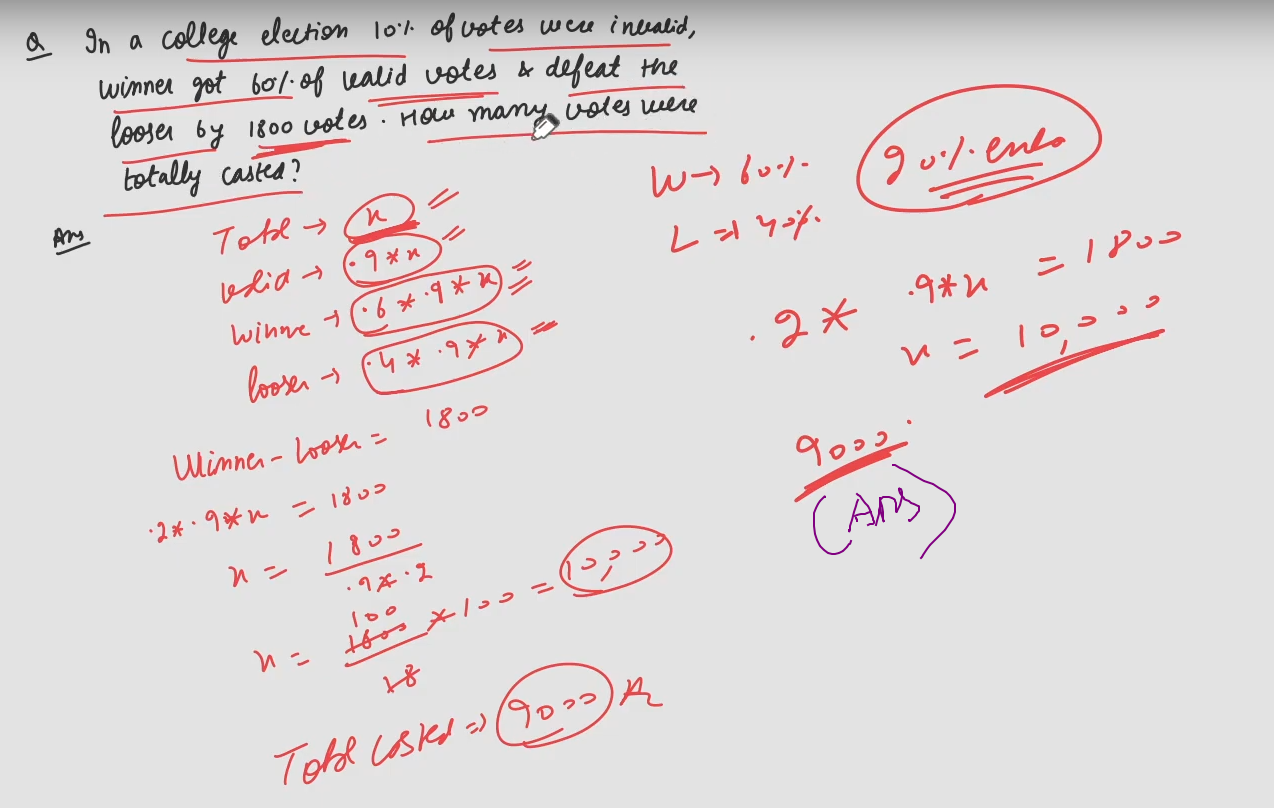 Q In a college election 10% of votes were invalid,
winner got 60% of valid votes & defeat the
looser by 1800 votes. How many votes were
totally casted?
Ans
Total → x
valid → .9*x
winne → .6*.9*x
looser → .4*.9*x
Winner - looser = 1800
.2*.9*x = 1800
x = 1800
.9*.2
100
x = 1800 *100 = 10,000
18
Total casted => 9000 A
W → 60%
L => 40%
20% extra
.2* .9*x = 1800
x = 10,000
9000.
(Ans)